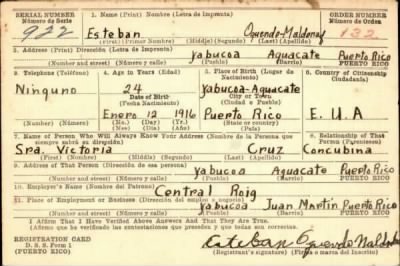 SERIAL NUMBER 1. Name (Print) Nombre (Letra de Imprenta) ORDER NUMBER
Número de Serie Número de Orden
922 Esteban Oquendo-Maldonado 132
(First) (Primer Nombre) (Middle) (Segundo) (Last) (Apellido)
2. Address (Print) Dirección (Letra de Imprenta)
Yabucoa Aguacate Puerto Rico
Number and street (Número y calle) (Pueblo) (Barrio) (PUERTO RICO)
3. Telephone (Teléfono) 4. Age in Years (Edad) 5. Place of Birth (Lugar de Nacimiento) 6. Country of Citizenship (Ciudadanía)
Ninguno 24 Yabucoa-Aguacate
Date of Birth City or Town
(Fecha Nacimiento) (Ciudad o Pueblo)
Enero 12 1916 Puerto Rico E.U.A
Number (Número) (Mo.) (Día) (Yr.) (State or country) (País)
7. Name of Person Who Will Always Know Your Address (Nombre de la Persona que siempre sabrá su dirección) 8. Relationship of That Person (Parentesco)
Sra. Victoria Cruz Concubina
(First) (Middle) (Segundo) (Last) (Apellido)
9. Address of That Person (Dirección de esa persona)
Yabucoa Aguacate Puerto Rico
Number and street (Número y calle) (Pueblo) (Barrio) (PUERTO RICO)
10. Employer's Name (Nombre del Patrono)
Central Roig
11. Place of Employment or Business (Dirección del empleo o negocio)
Yabucoa Juan Martin Puerto Rico
Number and street (Número y calle) (Pueblo) (Barrio) (PUERTO RICO)
I Affirm That I Have Verified Above Answers And That They Are True.
Afirmo que he verificado las contestaciones que preceden y que todas son correctas.
REGISTRATION CARD
D. S. S. Form 1
(PUERTO RICO)
Esteban Oquendo Maldonado
Registrant's signature) (Firma o marca del Inscrito)